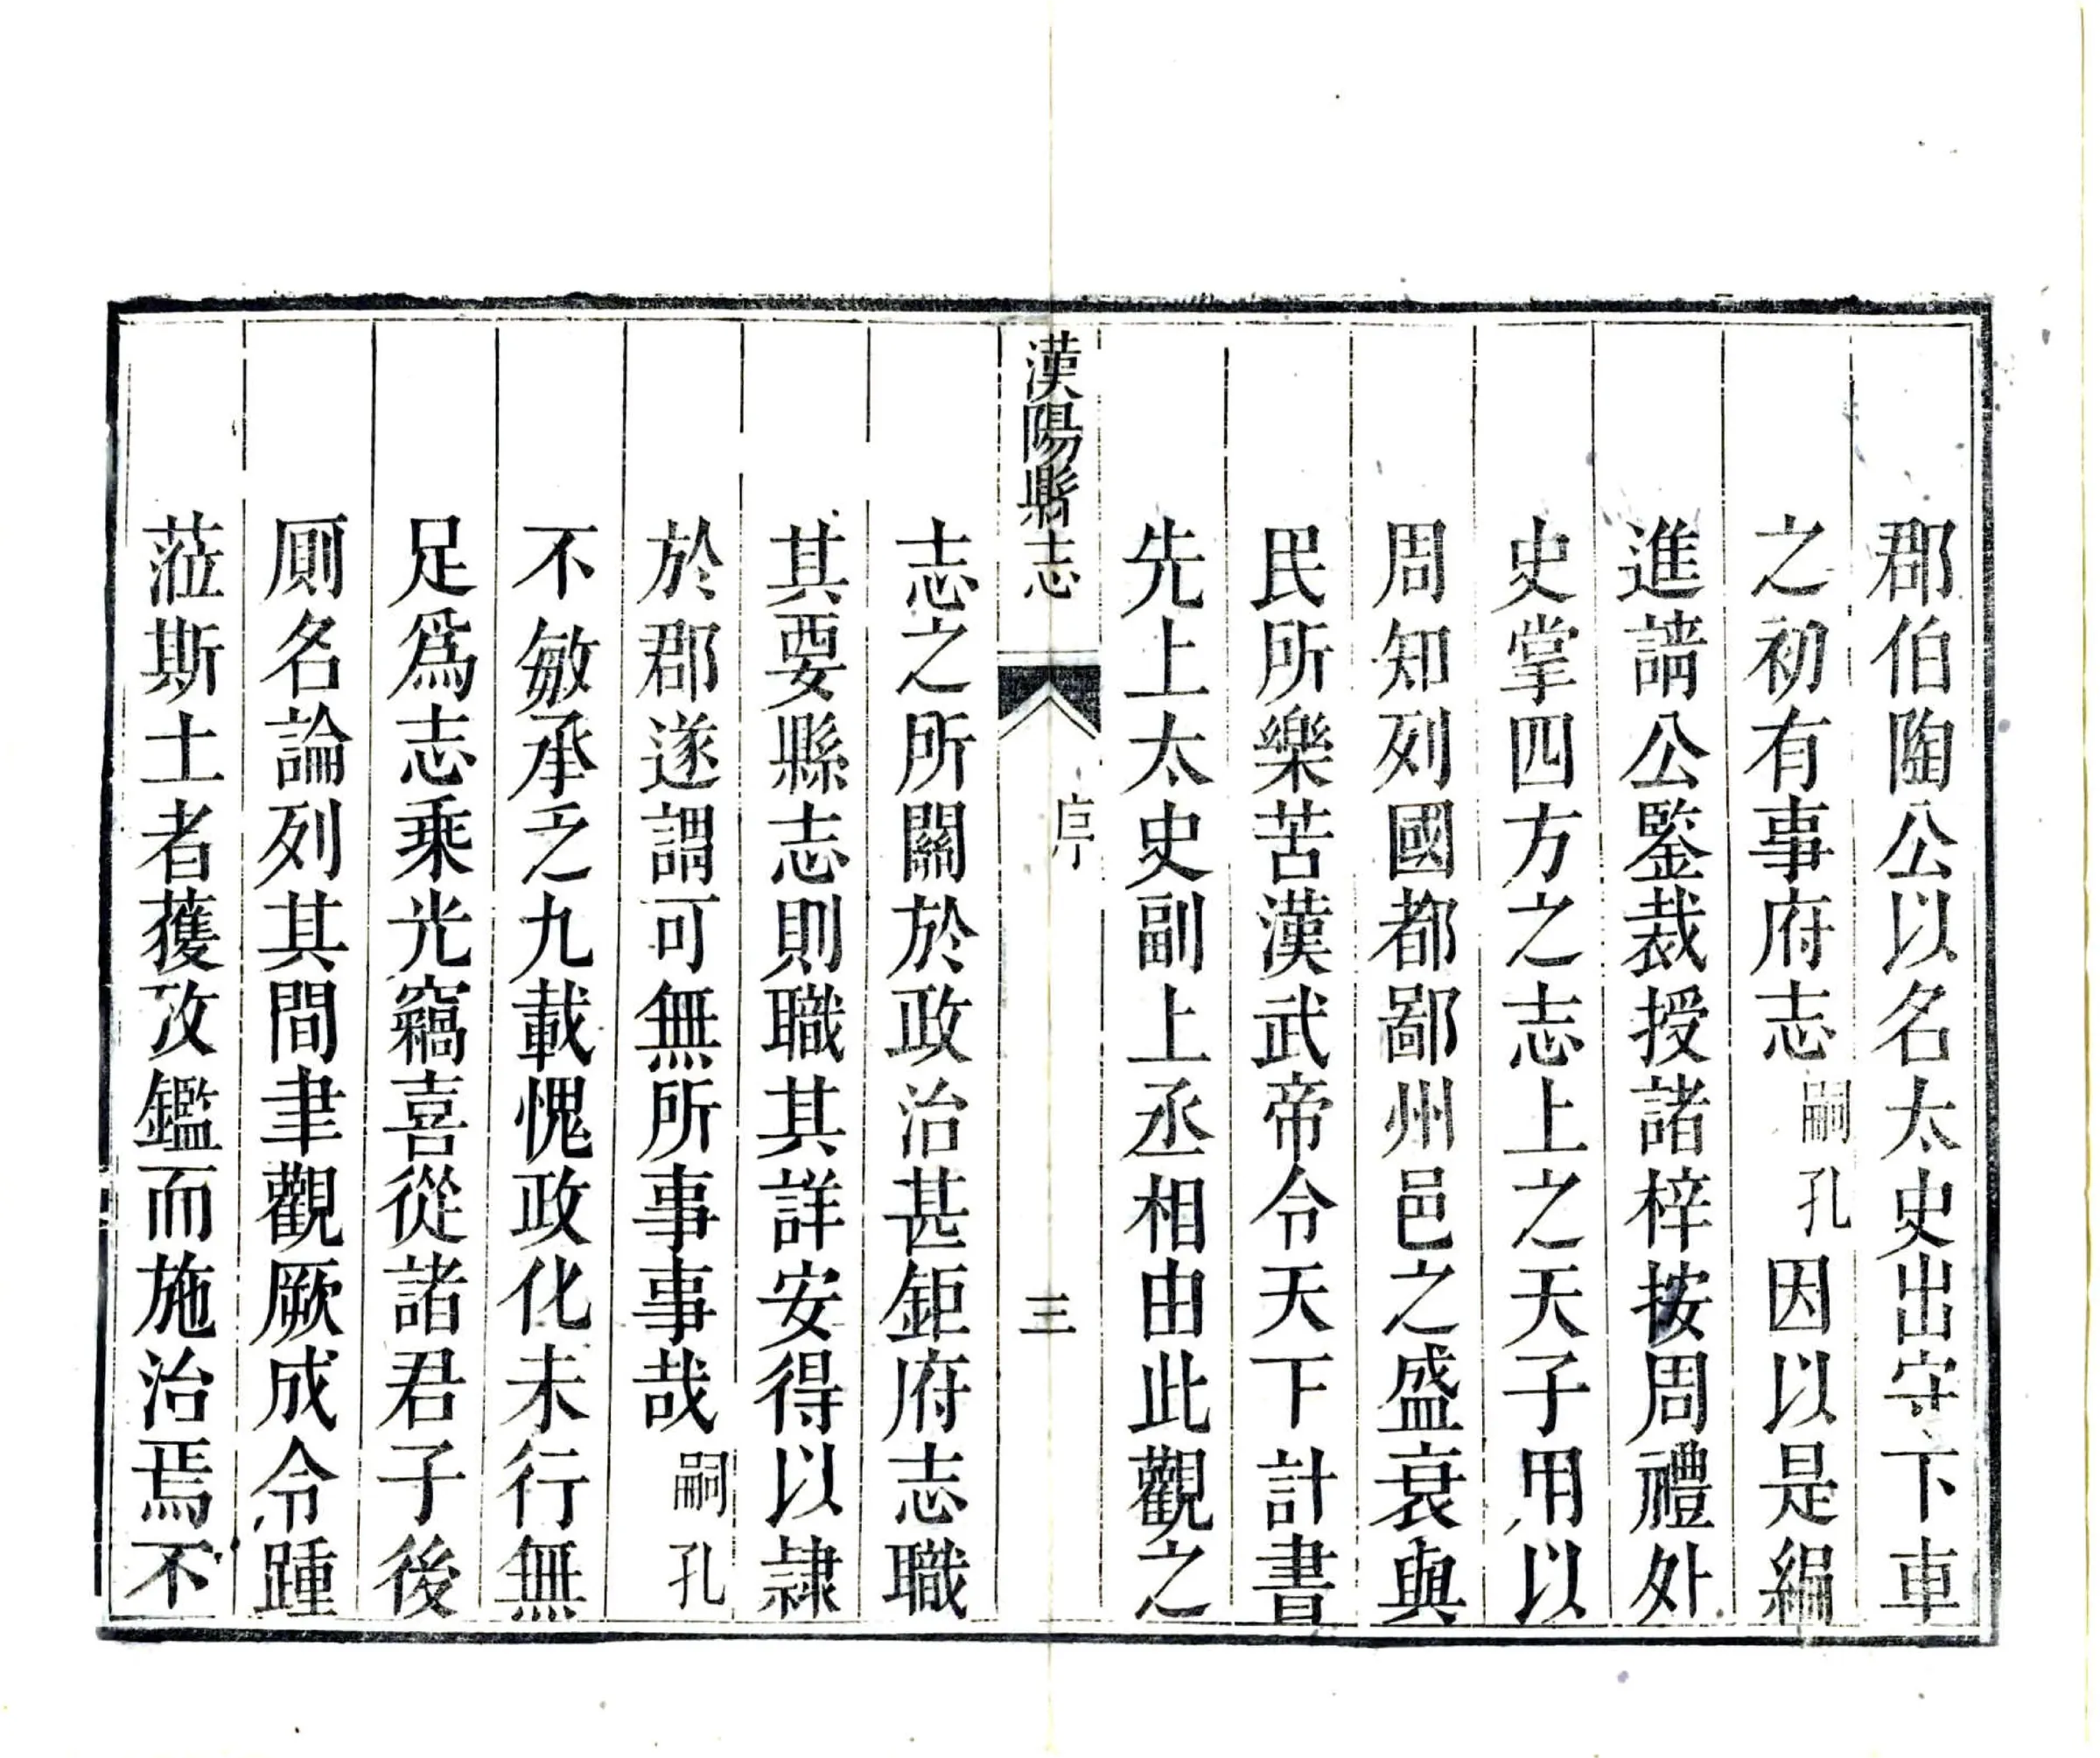 郡伯陶公以名太史出守下車
之初有事府志嗣孔因以是編
進請公鑒裁授諸梓按周禮外
史掌四方之志上之天子用以
周知列國都鄙州邑之盛衰與
民所樂苦漢武帝令天下計書
先上太史副上丞相由此觀之
漢陽縣志
序
三
志之所關於政治甚鉅府志職
其要縣志則職其詳安得以隷
於郡遂謂可無所事事哉嗣孔
不敏承乏九載愧政化未行無
足爲志乘光竊喜從諸君子後
厠名論列其間聿觀厥成令踵
蒞斯土者獲攷鑑而施治焉不